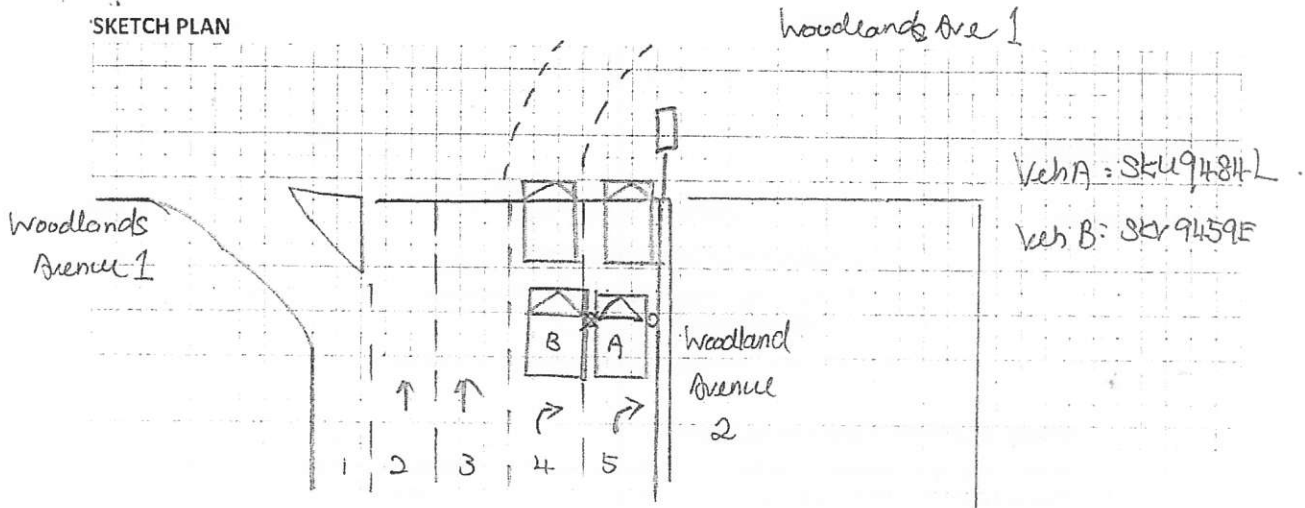 SKETCH PLAN
Woodlands Ave 1
Veh A : SKU9484L
Veh B : SKV9459E
Woodlands
Avenue 1
B
A
Woodland
Avenue
2
1
2
3
4
5